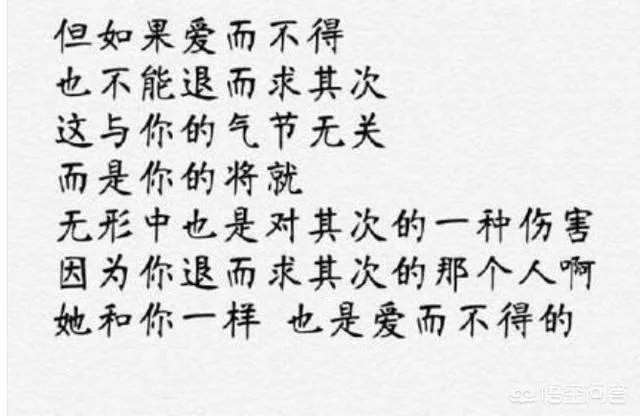 但如果爱而不得
也不能退而求其次
这与你的气节无关
而是你的将就
无形中也是对其次的一种伤害
因为你退而求其次的那个人啊
她和你一样 也是爱而不得的
悟空问答